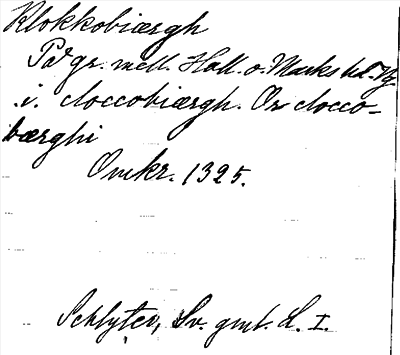 Klokkobiærgh
På gr. mell. Hall. o. Marks hd. Vg.
.i. cloccobiærgh. Or clocco-
bærghi
Omkr. 1325.
Schlyter, Sv. gml. L. I.